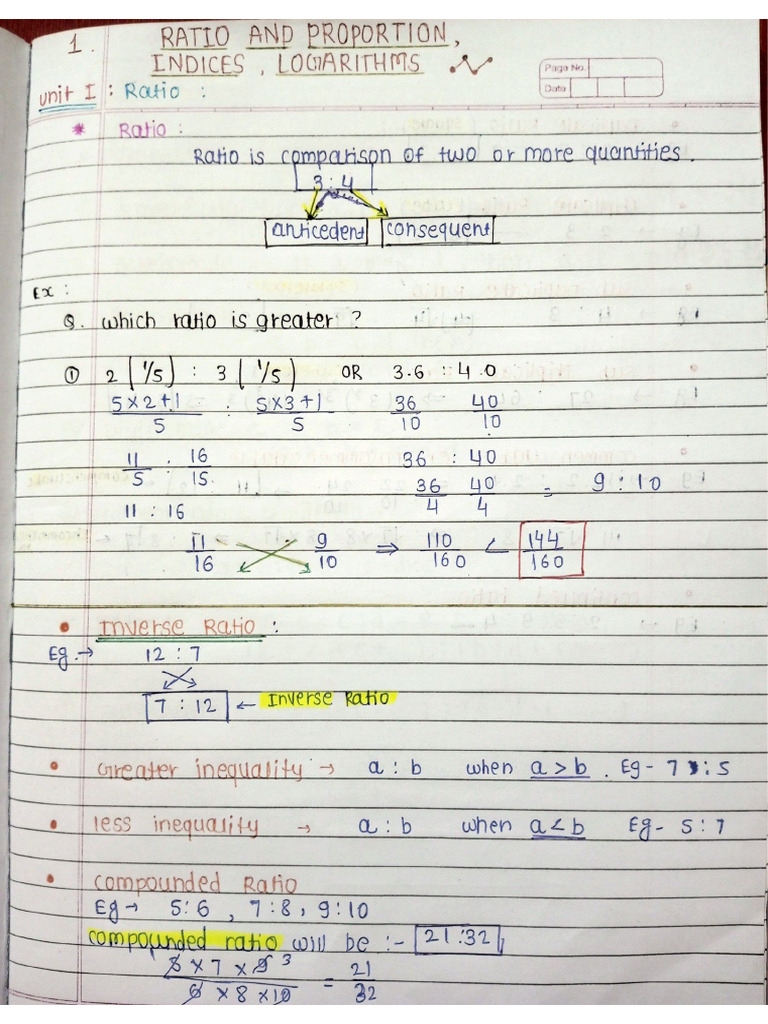 1. RATIO AND PROPORTION,
INDICES, LOGARITHMS
Page No.
Date
Unit I : Ratio :
* Ratio :
Ratio is comparison of two or more quantities.
3 : 4
anticedent consequent
Ex :
Q. which ratio is greater ?
① 2 (1/5) : 3 (1/5) OR 3.6 : 4.0
5×2+1/5 : 5×3+1/5 36/10 40/10
11/5 : 16/15. 36 : 40
11 : 16 36/4 40/4 = 9 : 10
11/16 9/10 ⇒ 110/160 < 144/160
• Inverse Ratio :
Eg.→ 12 : 7
7 : 12 ← Inverse Ratio
• Greater inequality → a : b when a > b. Eg- 7 : 5
• less inequality → a : b when a < b Eg- 5 : 7
• Compounded Ratio
Eg → 5:6 , 7:8 , 9:10
compounded ratio will be :- 21:32
5 × 7 × 9 3 / 6 × 8 × 10 = 21/32